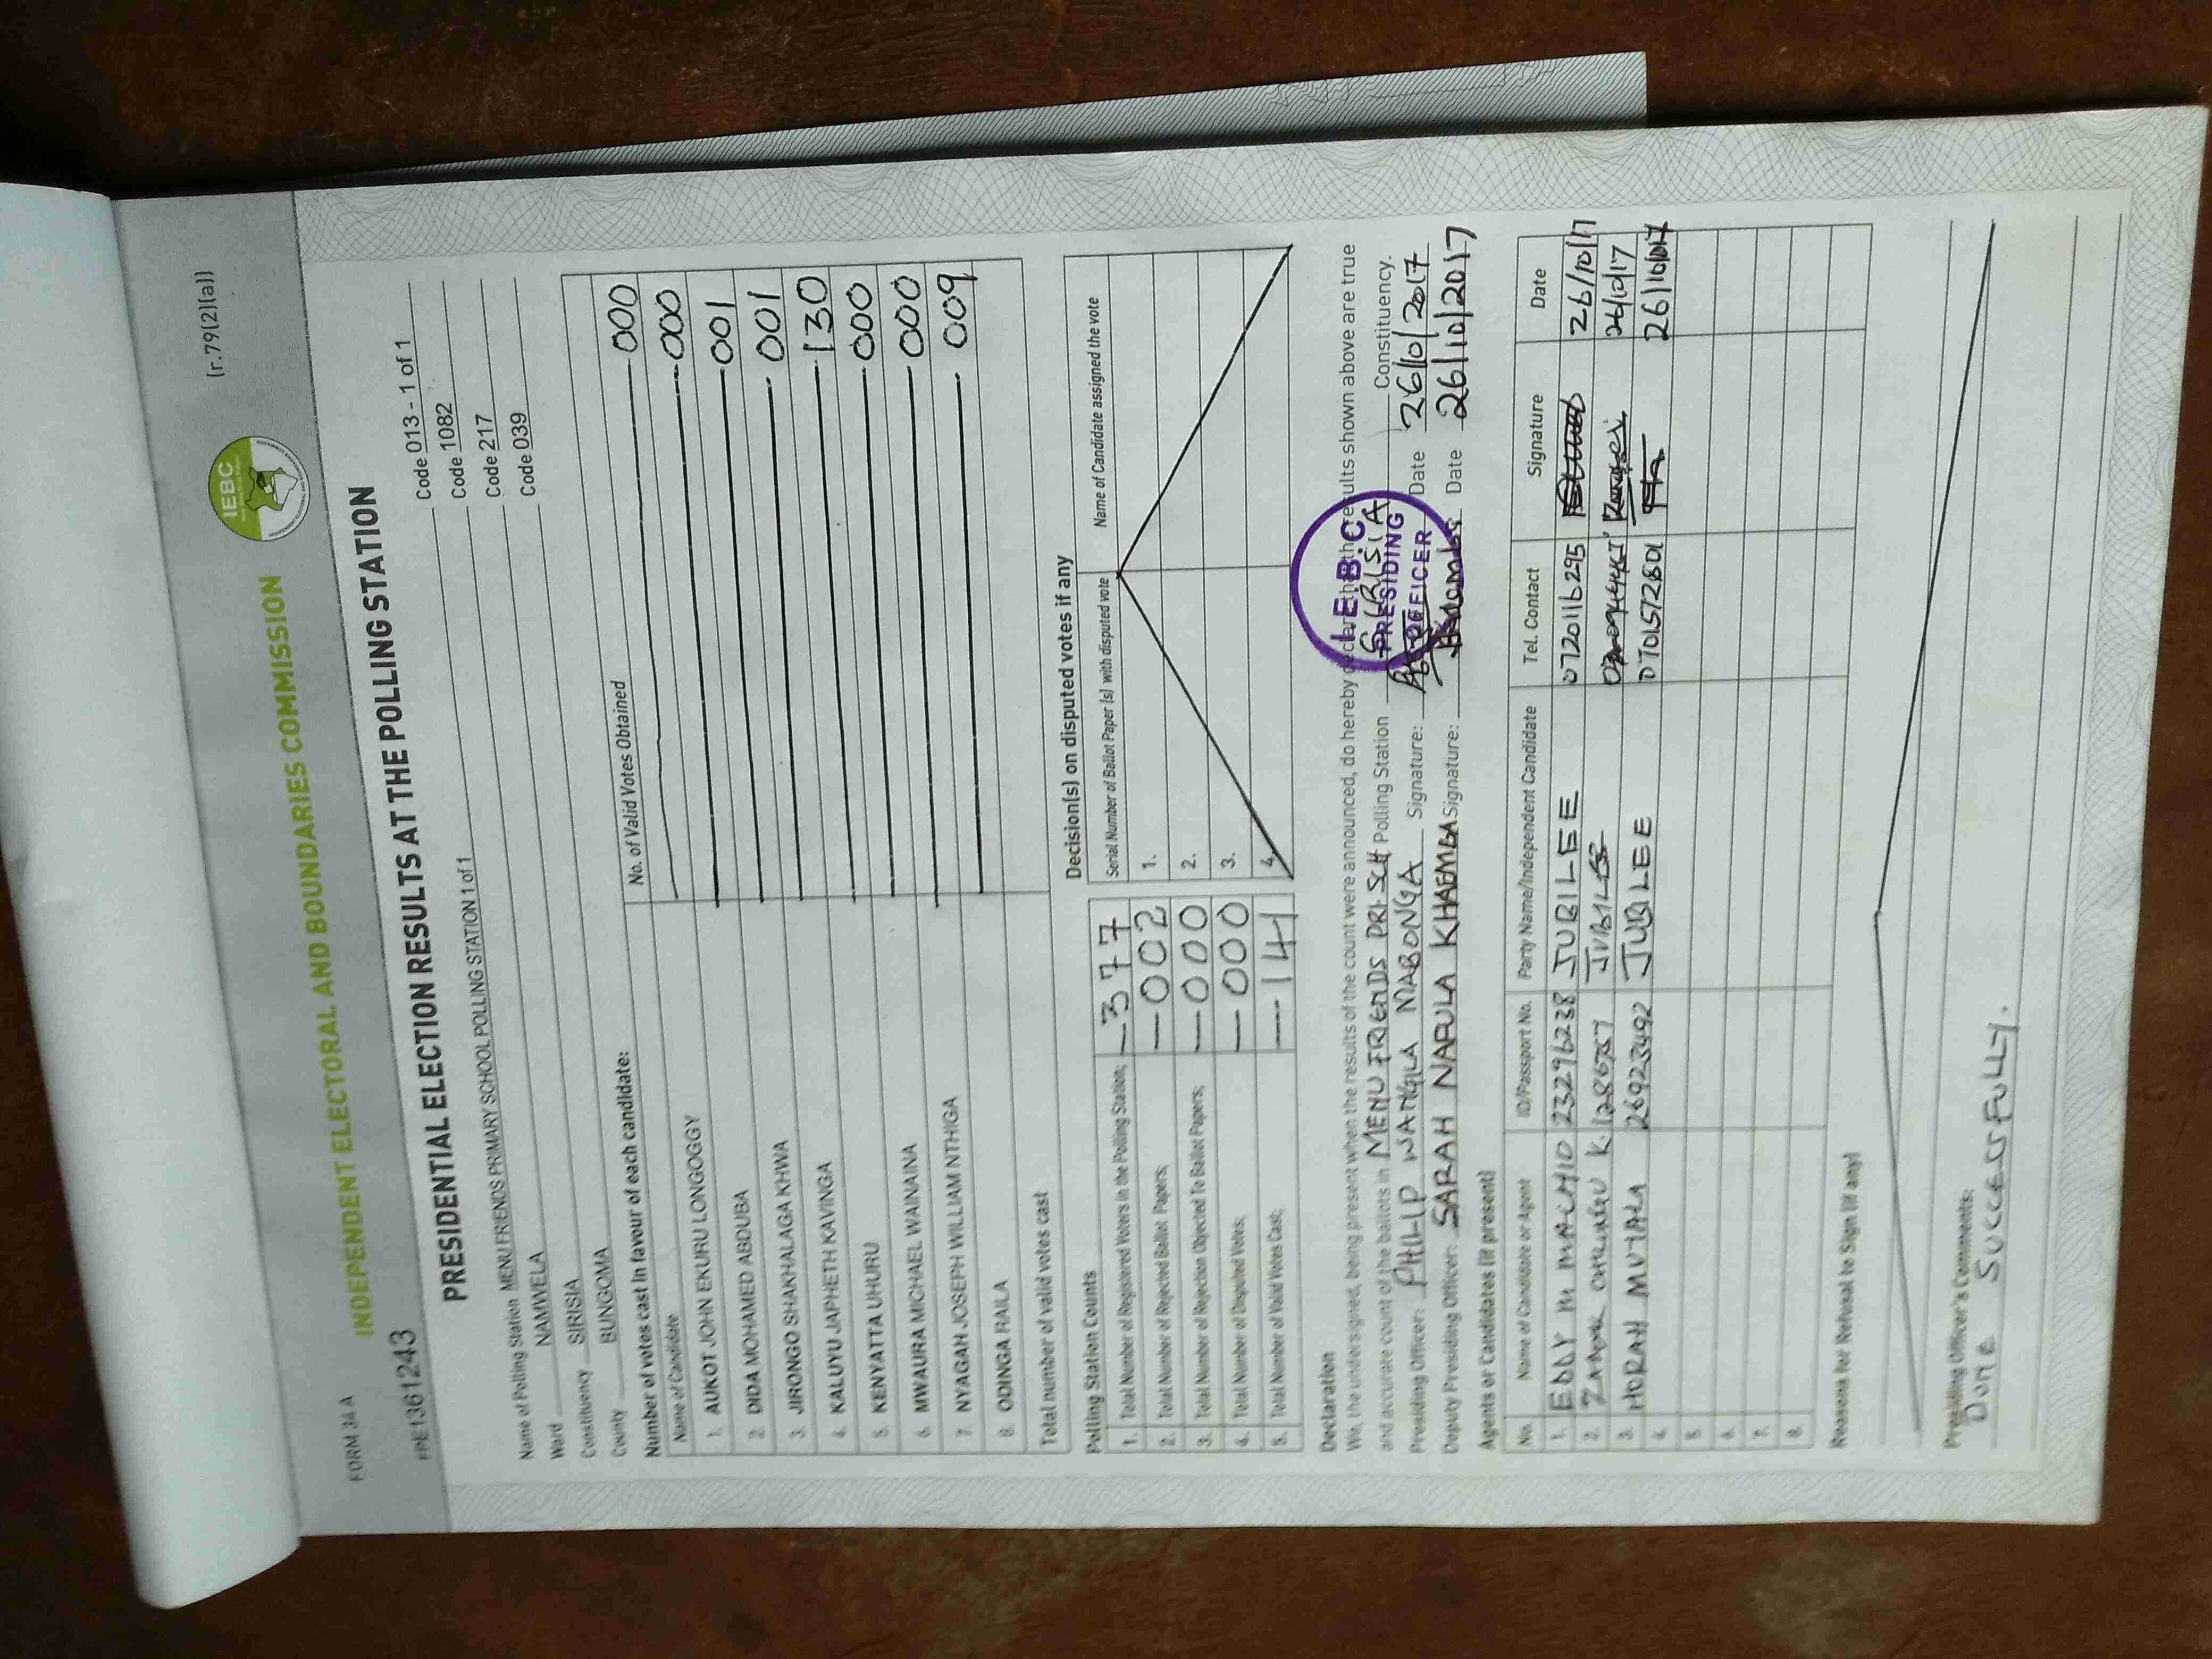 FORM 34 A
(r.79(2)(a))
INDEPENDENT ELECTORAL AND BOUNDARIES COMMISSION
IEBC
PRESIDENTIAL ELECTION RESULTS AT THE POLLING STATION
Name of Polling Station MENU FRIENDS PRIMARY SCHOOL POLLING STATION 1 of 1 Code 013 - 1 of 1
Ward NAMWELA Code 1082
Constituency SIRISIA Code 217
County BUNGOMA Code 039
Number of votes cast in favour of each candidate:
Name of Candidate No. of Valid Votes Obtained
1. AUKOT JOHN EKURU LONGOGGY 000
2. DIDA MOHAMED ABDUBA 000
3. JIRONGO SHAKHALAGA KHWA 001
4. KALUYU JAPHETH KAVINGA 001
5. KENYATTA UHURU 130
6. MWAURA MICHAEL WAINAINA 000
7. NYAGAH JOSEPH WILLIAM NTHIGA 000
8. ODINGA RAILA 009
Total number of valid votes cast
Polling Station Counts
1. Total Number of Registered Voters in the Polling Station; 377
2. Total Number of Rejected Ballot Papers; 002
3. Total Number of Rejection Objected To Ballot Papers; 000
4. Total Number of Disputed Votes; 000
5. Total Number of Valid Votes Cast; 141
Decision(s) on disputed votes if any
Serial Number of Ballot Paper (s) with disputed vote Name of Candidate assigned the vote
1.
2.
3.
4.
Declaration
We, the undersigned, being present when the results of the count were announced, do hereby declare that the results shown above are true
and accurate count of the ballots in MENU FRIENDS PRI SCH Polling Station SIRISIA Constituency.
Presiding Officer: PHILIP WANGILA MABONGA Signature: Date 26/10/2017
Deputy Presiding Officer: SARAH NAFULA KHAEMBA Signature: Date 26/10/2017
I.E.B.C
PRESIDING
OFFICER
Agents or Candidates (if present)
No. Name of Candidate or Agent ID/Passport No. Party Name/Independent Candidate Tel. Contact Signature Date
1. EDDY M MACHIO 23296238 JUBILEE 0720116295 26/10/17
2. JUBILEE 26/10/17
3. HORAH MUTALA 26923492 JUBILEE 0701572801 26/10/17
4.
5.
6.
7.
8.
Reasons for Refusal to Sign (if any)
Presiding Officer's Comments:
Done SUCCESSFULLY.